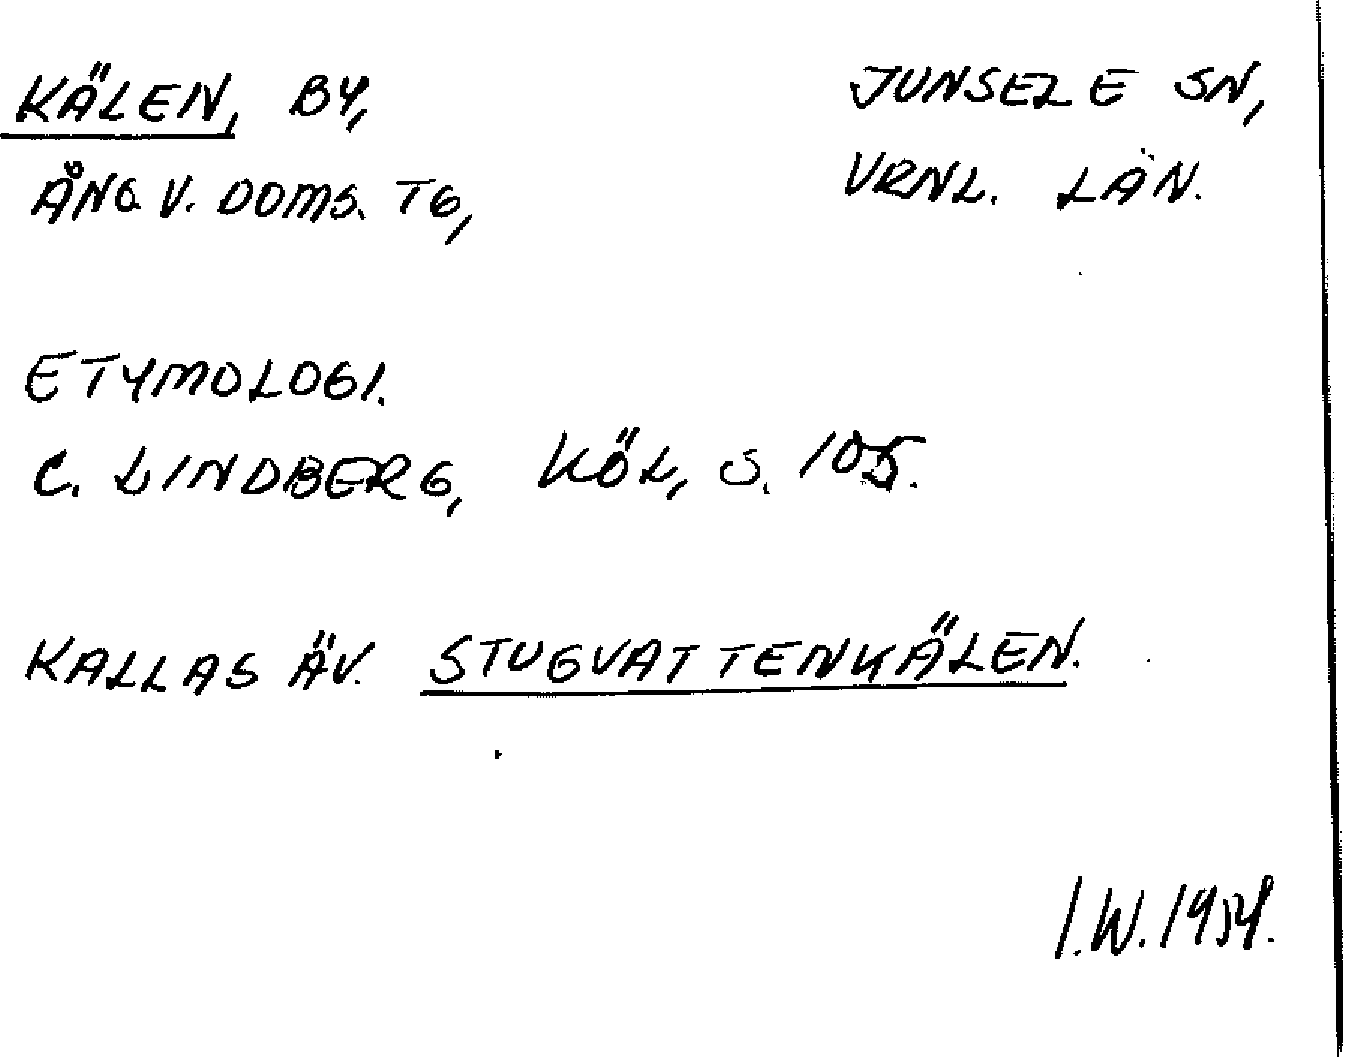 KÄLEN, BY,
JUNSELE SN,
ÅNG. V. DOMS. TG,
VRNL. LÄN.
ETYMOLOGI.
C. LINDBERG, KÖL, S. 105.
KALLAS ÄV. STUGVATTENKÄLEN.
I.W.